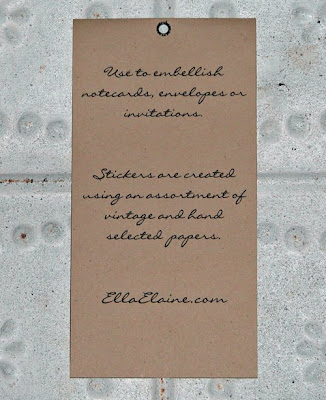 Use to embellish
notecards, envelopes or
invitations.
Stickers are created
using an assortment of
vintage and hand
selected papers.
EllaElaine.com